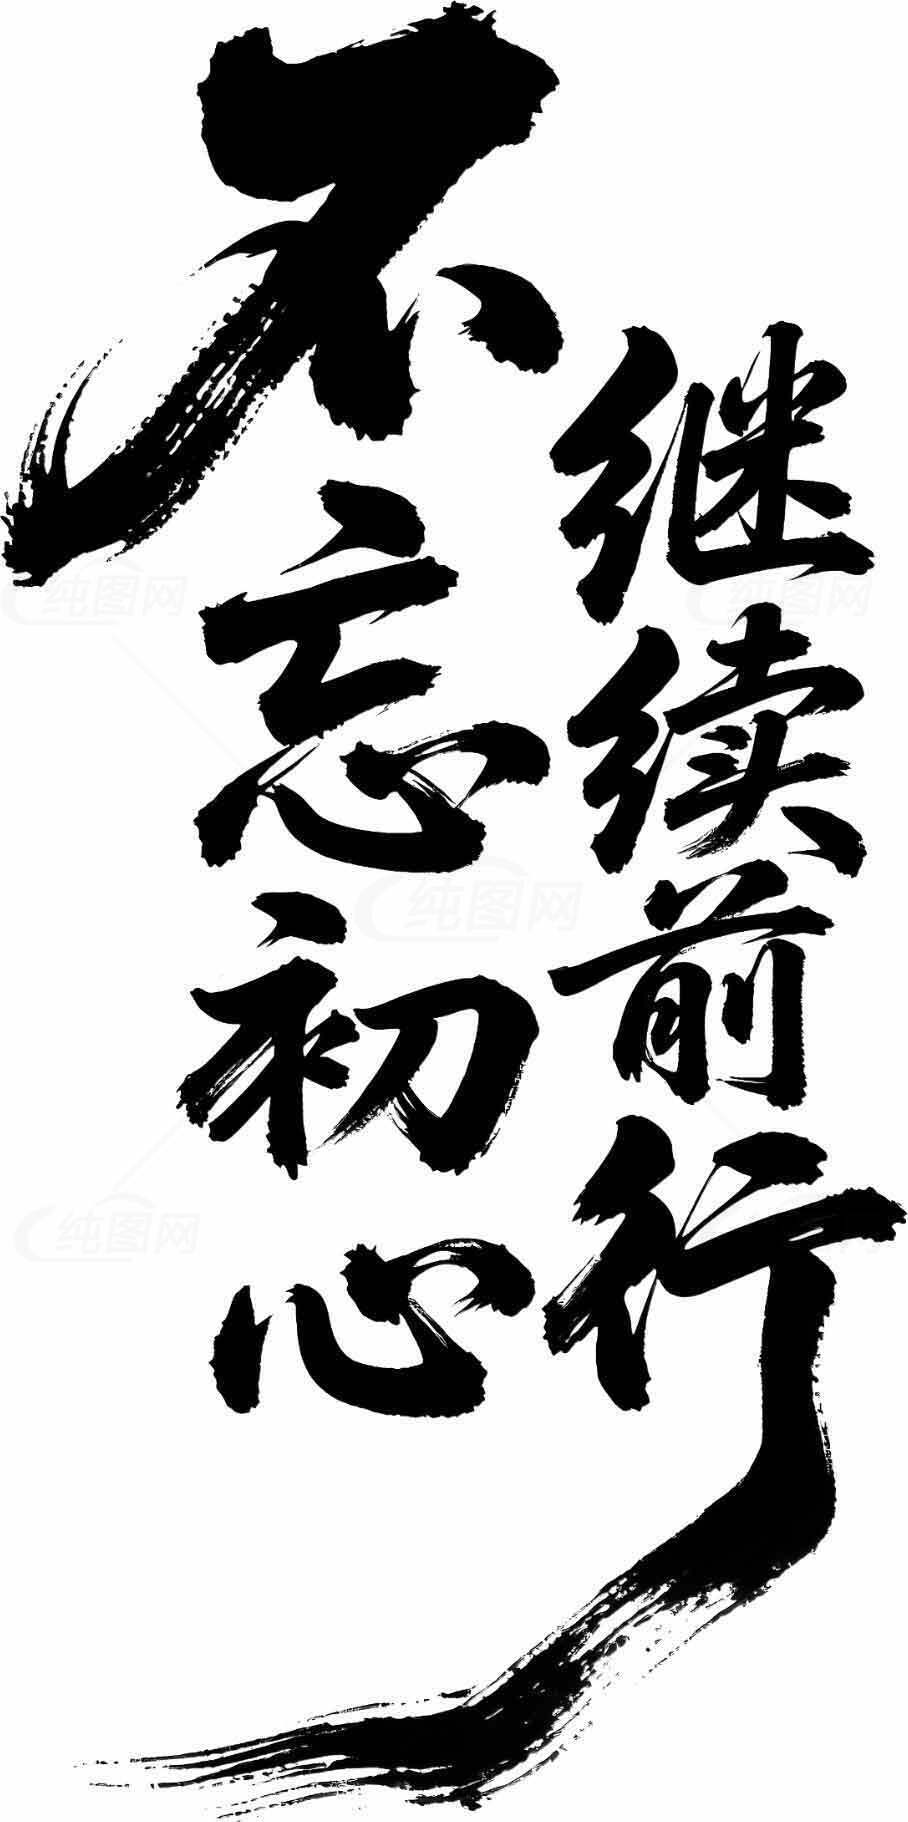 不忘初心
继续前行
纯图网
纯图网
纯图网
纯图网